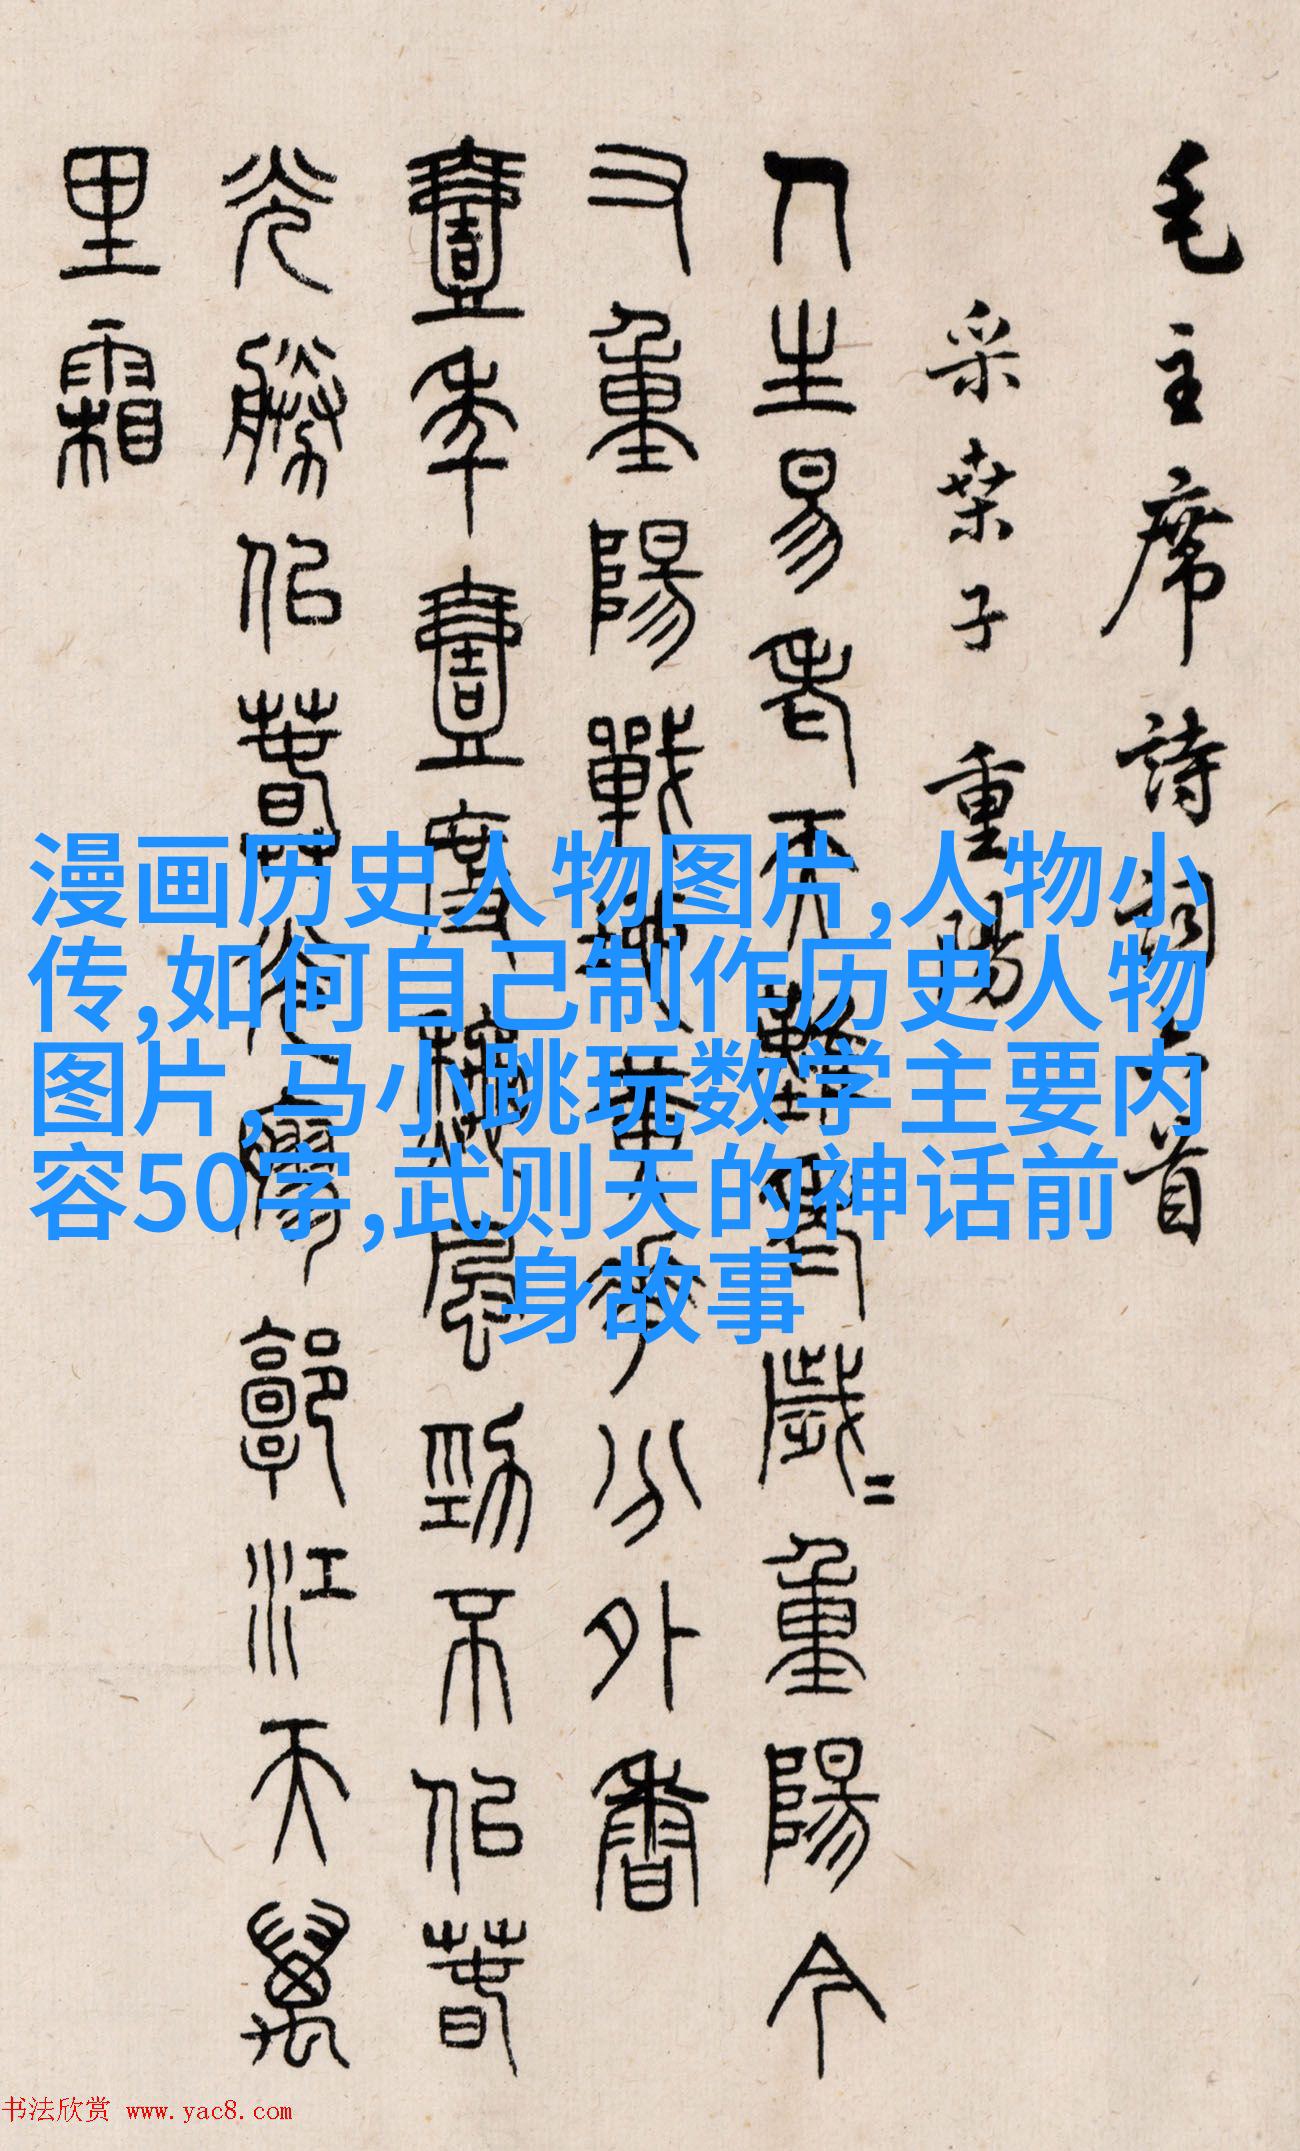 毛主席詩詞首
采桒子 重陽
人生易老天難老歲〓重陽今
又重陽戰地黃花分外香
壹年壹度秋風勁不似春
光勝似春光廖郭江天萬
里霜
漫画历史人物图片,人物小
传,如何自己制作历史人物
图片,马小跳玩数学主要内
容50字,武则天的神话前
身故事
书法欣赏 www.yac8.com